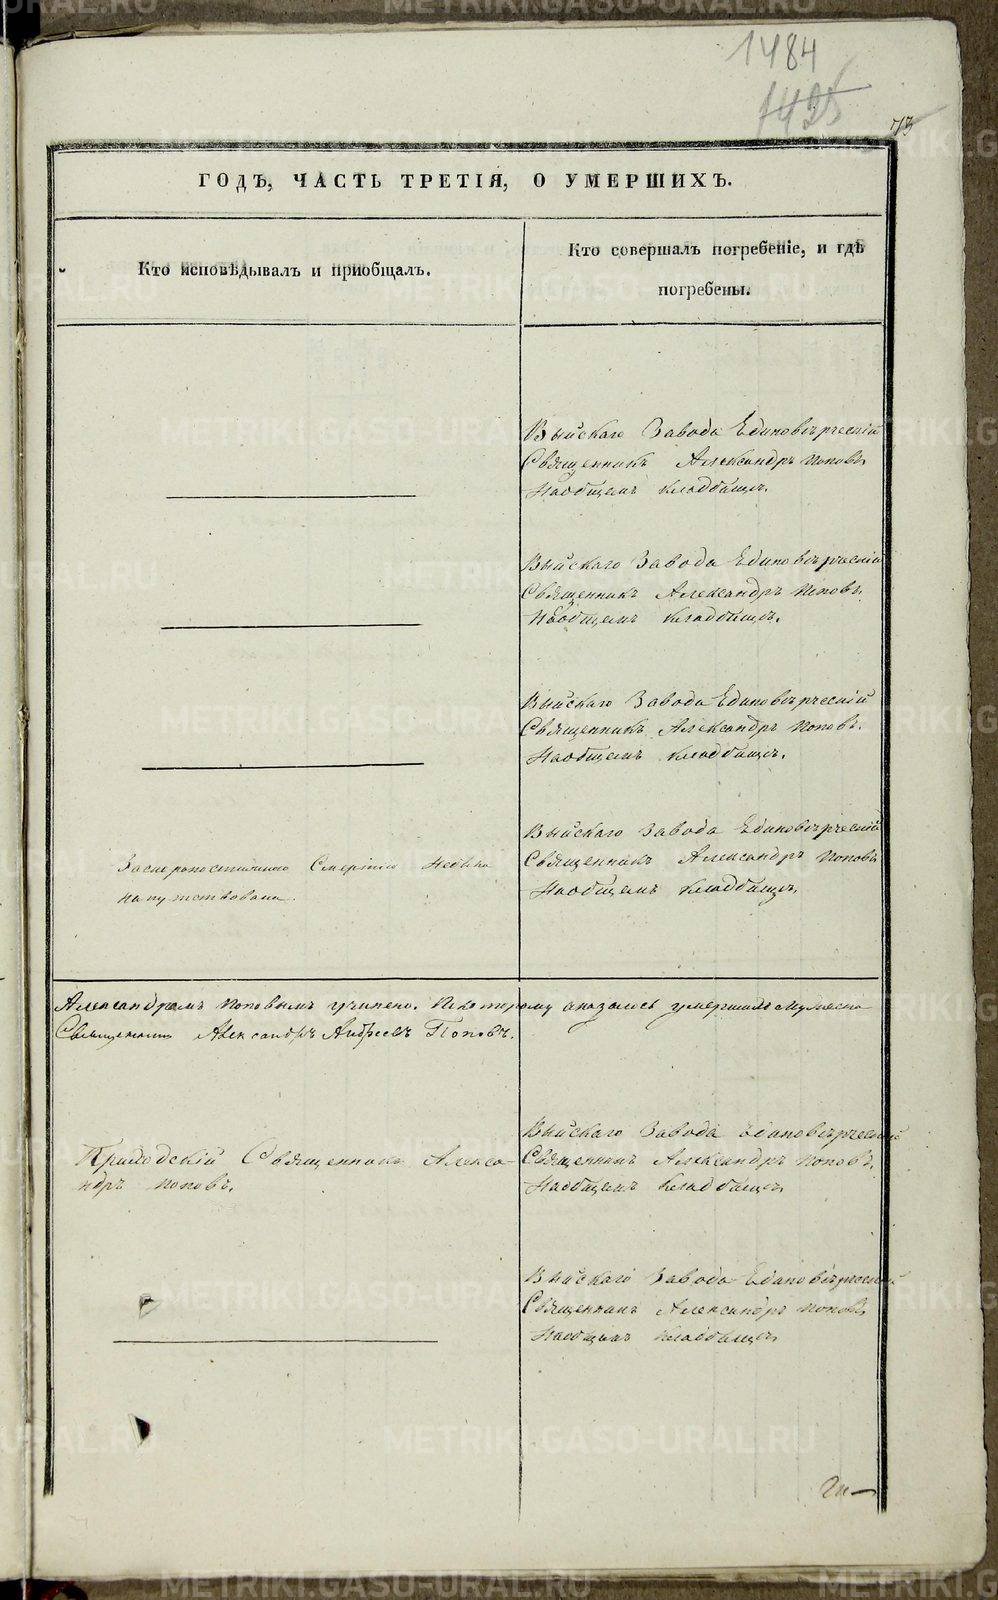 1484
1435
73
ГОДЪ, ЧАСТЬ ТРЕТІЯ, О УМЕРШИХЪ.
Кто исповѣдывалъ и приобщалъ.
Кто совершалъ погребеніе, и гдѣ
погребены.
Выйскаго Завода Единовѣрческій
Священникъ Александръ Поповъ
Наобщемъ кладбищѣ.
Выйскаго Завода Единовѣрческій
Священникъ Александръ Поповъ.
Наобщемъ Кладбищѣ.
Выйскаго Завода Единовѣрческій
Священникъ Александръ Поповъ.
Наобщемъ Кладбищѣ.
Заскоропостижною Смертію Небыла
напутствована.
Выйскаго Завода Единовѣрческій
Священникъ Александръ Поповъ
Наобщемъ Кладбищѣ.
Александромъ Поповымъ учинено. Покоторому оказалось умершихъ Мужеска
Священникъ Александръ Андреевъ Поповъ.
Приходскій Священникъ Алекса-
ндръ Поповъ.
Выйскаго Завода Единовѣрческій
Священникъ Александръ Поповъ.
Наобщемъ Кладбищѣ
Выйскаго Завода Единовѣрческій
Священникъ Александръ Поповъ
Наобщемъ Кладбищѣ
METRIKI.GASO-URAL.RU